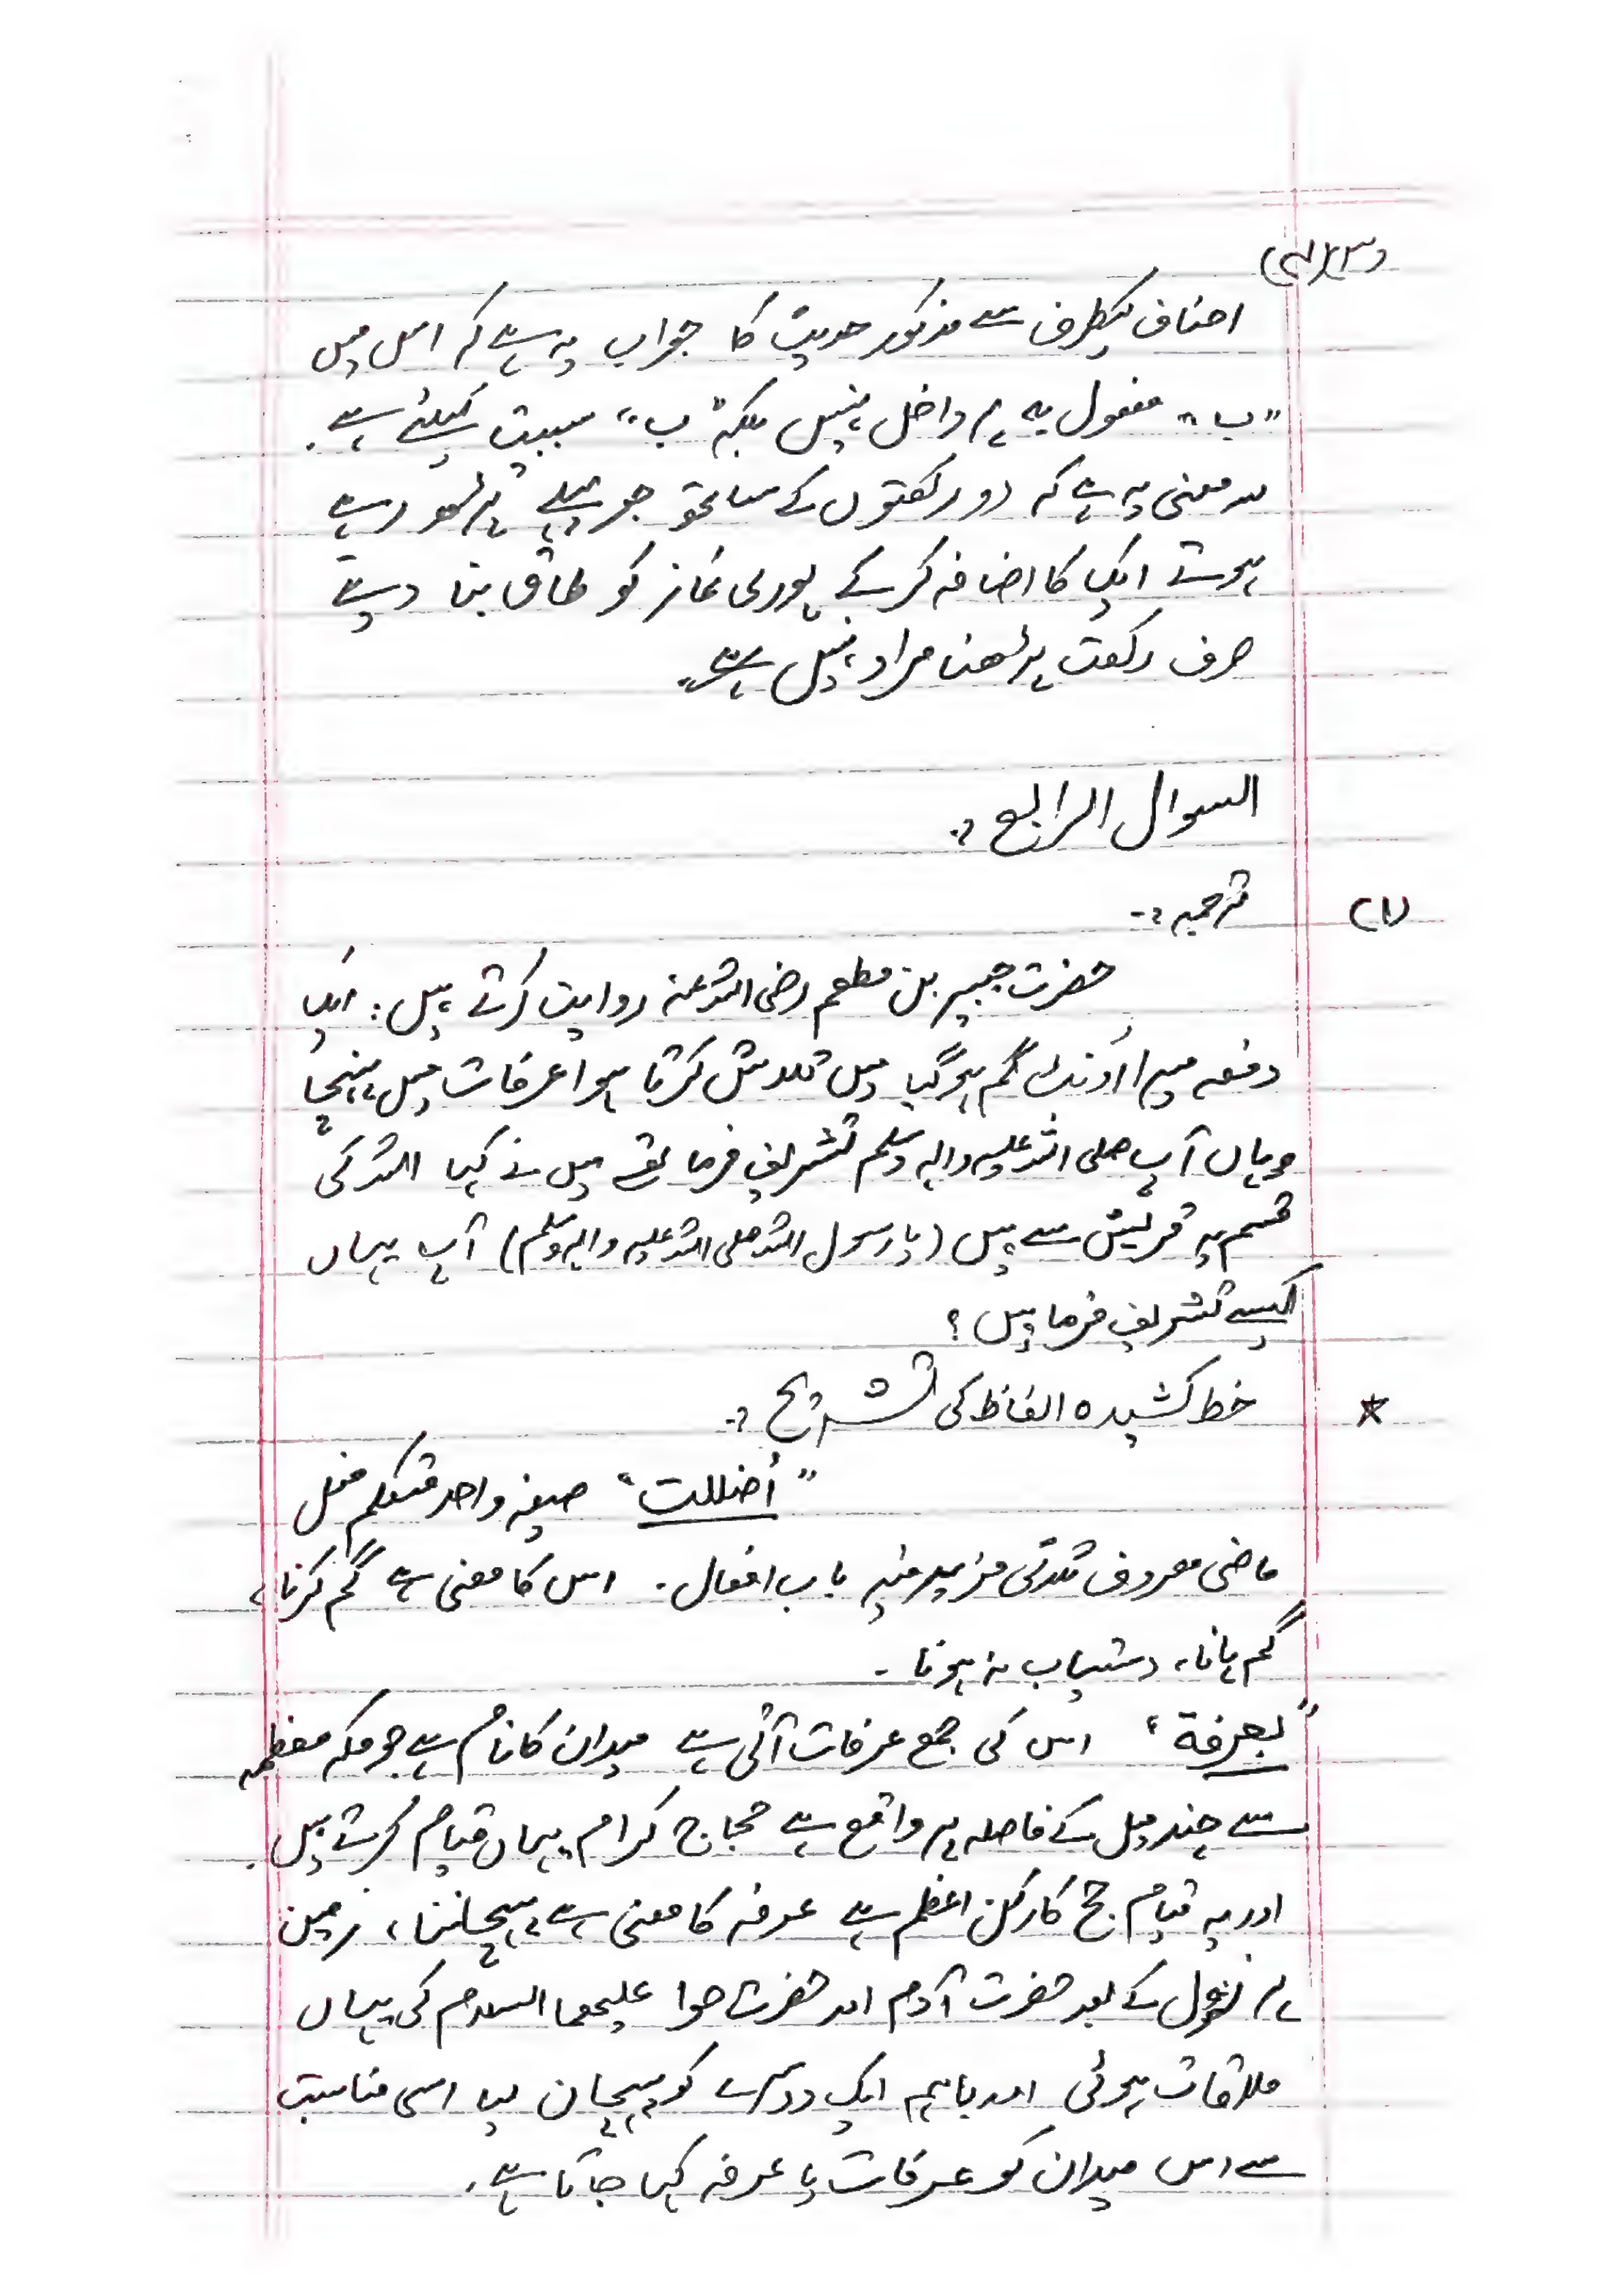 احناف کیطرف سے مذکور حدیث کا جواب یہ ہے کہ اس میں
"ب" مفعول بہ پر داخل نہیں بلکہ "ب" سببیت کیلئے ہے۔
معنی یہ ہے کہ دو رکعتوں کے ساتھ جو پہلے پڑھ رہے
ہوتے ایک کا اضافہ کرکے پوری نماز کو طاق بنا دیتے
صرف رکعت پڑھنا مراد نہیں ہے۔
السوال الرابع :۔
(۱) ترجمہ :۔
حضرت جبیر بن مطعم رضی اللہ عنہ روایت کرتے ہیں: ایک
دفعہ میرا اونٹ گم ہوگیا میں تلاش کرتا ہوا عرفات میں پہنچا
وہاں آپ صلی اللہ علیہ والہ وسلم تشریف فرما تھے میں نے کہا اللہ کی
قسم یہ قریش سے ہیں (یا رسول اللہ صلی اللہ علیہ والہ وسلم) آپ یہاں
کیسے تشریف فرما ہیں؟
★ خط کشیدہ الفاظ کی تشریح :۔
"أضللت" صیغہ واحد متکلم فعل
ماضی معروف ثلاثی مزید فیہ باب افعال۔ اس کا معنی ہے گم کرنا،
گم پانا، دستیاب نہ ہونا۔
"بعرفة" اس کی جمع عرفات آتی ہے میدان کا نام ہے جو مکہ معظمہ
سے چند میل کے فاصلہ پر واقع ہے حجاج کرام یہاں قیام کرتے ہیں۔
اور یہ قیام حج کا رکن اعظم ہے عرفہ کا معنی ہے پہچاننا، زمین
پر نزول کے بعد حضرت آدم اور حضرت حوا علیھما السلام کی یہاں
ملاقات ہوئی اور باہم ایک دوسرے کو پہچان لیا اسی مناسبت
سے اس میدان کو عرفات یا عرفہ کہا جاتا ہے۔